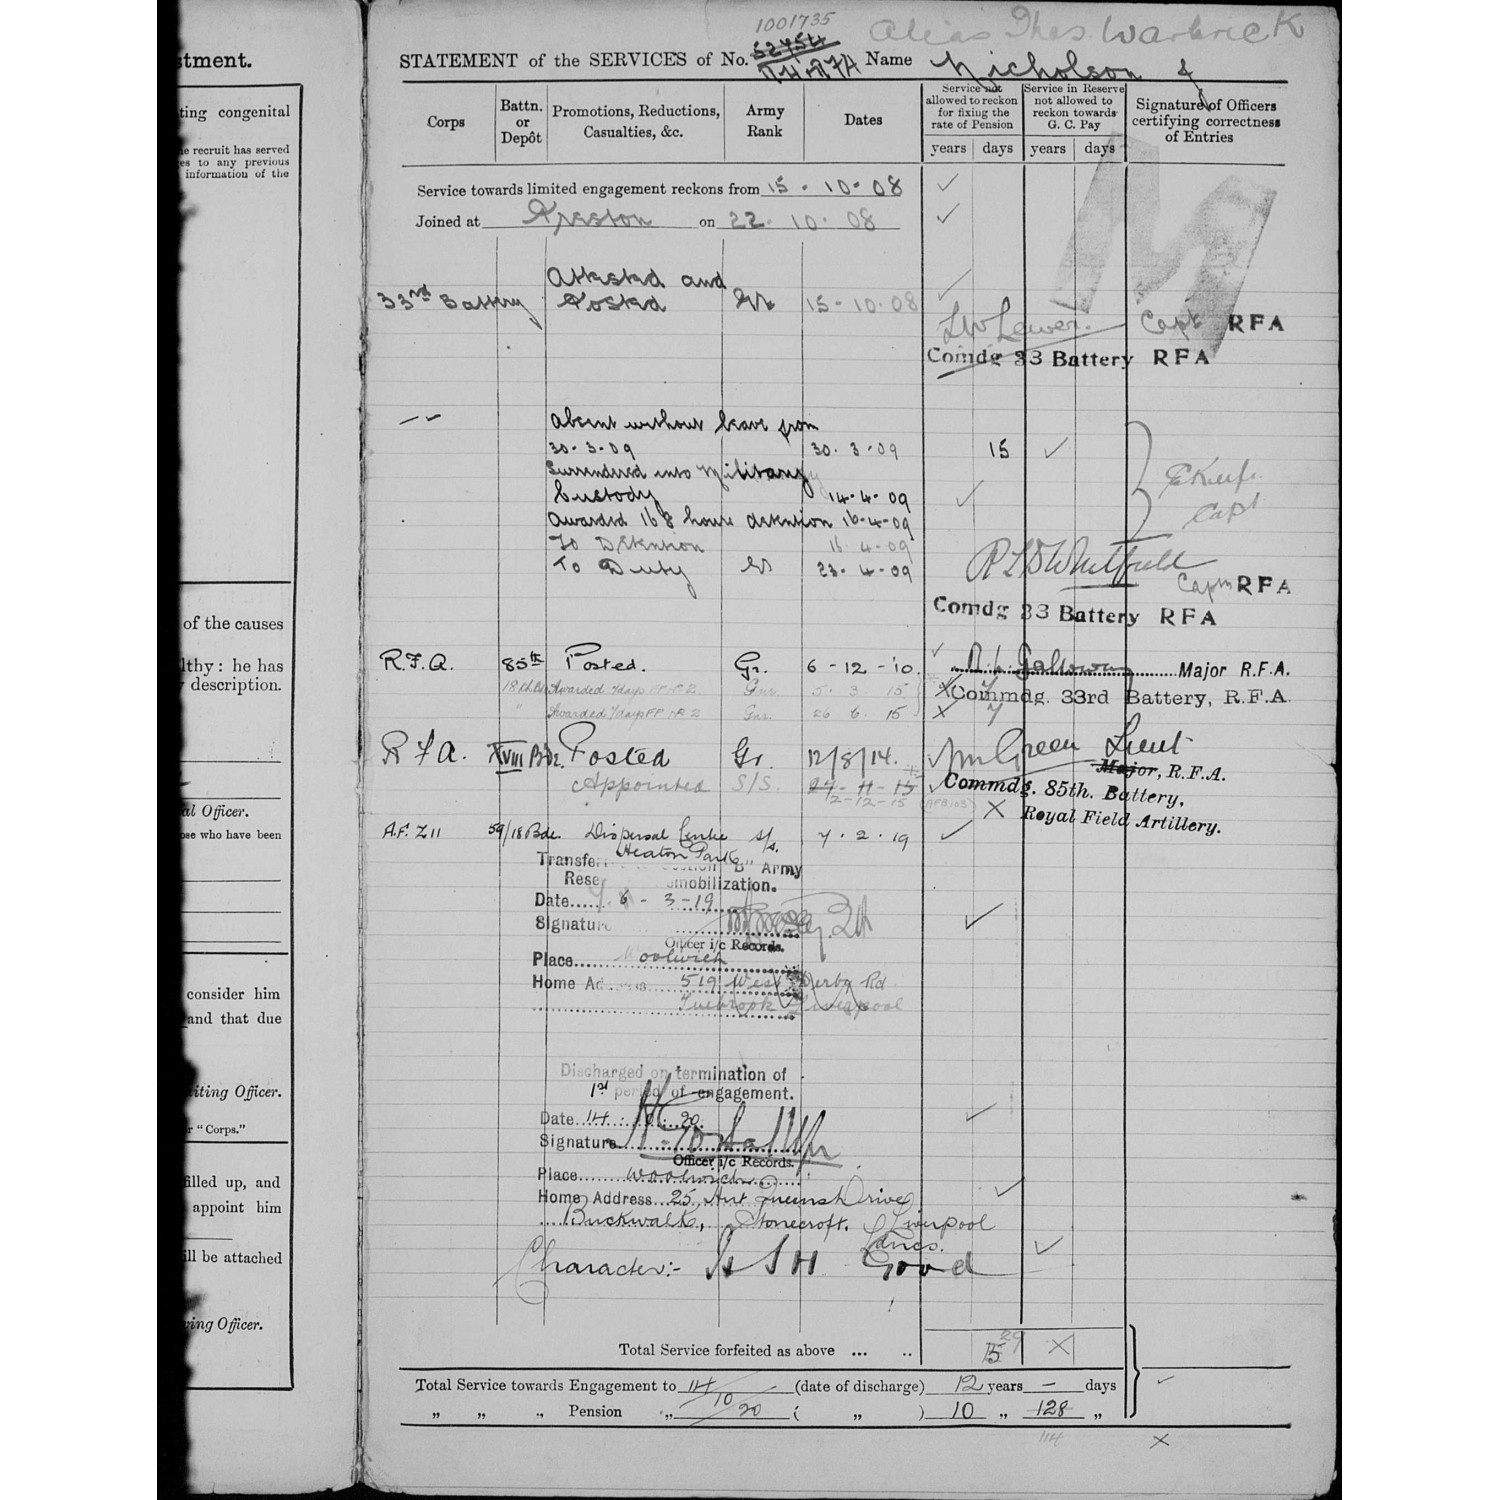 stment.
ting congenital
e recruit has served
es to any previous
information of the
of the causes
lthy: he has
description.
al Officer.
ose who have been
consider him
and that due
iting Officer.
r "Corps."
filled up, and
appoint him
ill be attached
ving Officer.
1001735
Alias Thos. Warbrick
STATEMENT of the SERVICES of No. 52454 Name Nicholson J
R.H. & R.F.A
Corps
Battn. or Depôt
Promotions, Reductions, Casualties, &c.
Army Rank
Dates
Service not allowed to reckon for fixing the rate of Pension
Service in Reserve not allowed to reckon towards G. C. Pay
Signature of Officers certifying correctness of Entries
years days years days
Service towards limited engagement reckons from 15 . 10 . 08
Joined at Preston on 22 . 10 . 08
M
Attested and
33rd Battery Posted Gr 15 - 10 . 08
Capt RFA
Comdg 33 Battery RFA
Absent without leave from
30 . 3 . 09 30 . 3 . 09 15
Surrendered into Military
Custody 14 . 4 . 09
Capt
Awarded 168 hours detention 16-4-09
To Detention 16 . 4 - 09
To Duty Gr 23 . 4 . 09
Capt RFA
Comdg 33 Battery RFA
R.F.A. 85th Posted. Gr. 6 - 12 - '10 Major R.F.A.
Awarded 7 days FP No 2 Gnr 5 . 3 . 15 X 7 Commdg. 33rd Battery, R.F.A.
" Awarded 7 days FP No 2 Gnr. 26 6 . 15 X 7
R F A. XVIII Bde. Posted Gr. 12/8/14. Wm Green Lieut
Major, R.F.A.
Appointed S/S. 27 - 11 - 15 Commdg. 85th. Battery,
2-12-15
X Royal Field Artillery.
A.F. Z 11 59/18 Bde. Dispersal Centre S/S. 7 . 2 . 19
Heaton Park
Transfer Army
Rese mobilization.
Date 6 - 3 - 19
Signature
Officer i/c Records.
Place Woolwich
Home Address 519 West Derby Rd
Tuebrook Liverpool
Discharged on termination of
1st period of engagement.
Date 14 . 10 . 20.
Signature
Officer i/c Records.
Place Woolwich
Home Address 25, Queens Drive,
Stonecroft, Liverpool
Lancs.
Character:- Good
Total Service forfeited as above ... .. 15 29 X
Total Service towards Engagement to 14/10/20 (date of discharge) 12 years - days
„ „ „ Pension „ ( „ ) 10 „ 128 „
114 X